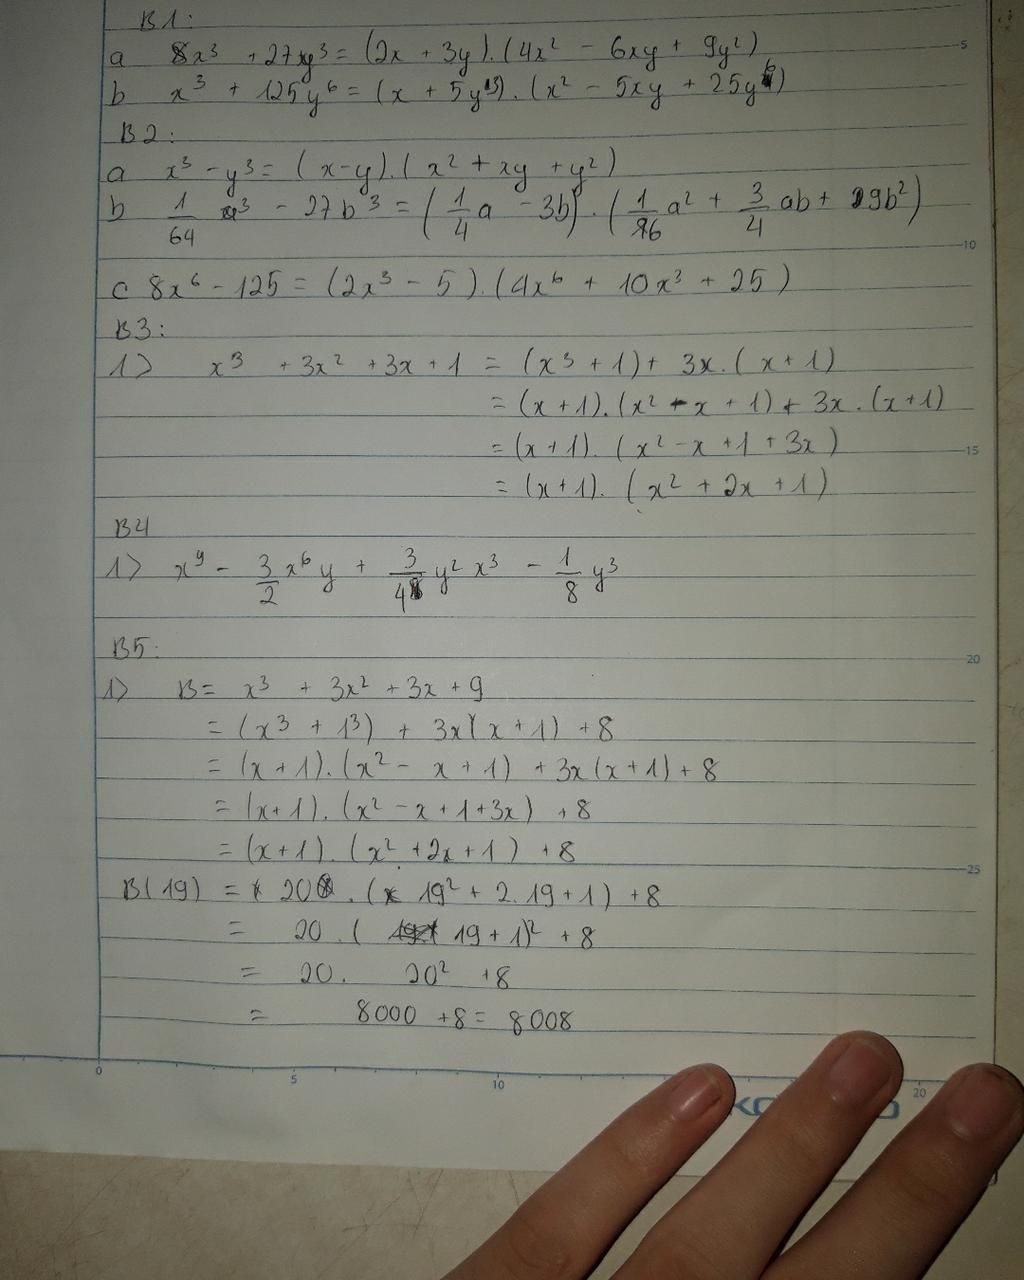 B1:
a 8x³ + 27y³ = (2x + 3y).(4x² - 6xy + 9y²)
b x³ + 125y⁶ = (x + 5y³).(x² - 5xy + 25y⁶)
B2:
a x³ - y³ = (x-y).(x² + xy + y²)
b 1/64 a³ - 27b³ = (1/4 a - 3b).(1/16 a² + 3/4 ab + 9b²)
c 8x⁶ - 125 = (2x³ - 5).(4x⁶ + 10x³ + 25)
B3:
1> x³ + 3x² + 3x + 1 = (x³ + 1) + 3x.(x + 1)
= (x + 1).(x² - x + 1) + 3x.(x+1)
= (x + 1).(x² - x + 1 + 3x)
= (x+1).(x² + 2x + 1)
B4
1> x⁹ - 3/2 x⁶y + 3/4 y² x³ - 1/8 y³
B5:
1> B = x³ + 3x² + 3x + 9
= (x³ + 1³) + 3x(x + 1) + 8
= (x + 1).(x² - x + 1) + 3x(x + 1) + 8
= (x+1).(x² - x + 1 + 3x) + 8
= (x+1).(x² + 2x + 1) + 8
B(19) = 20.(19² + 2.19 + 1) + 8
= 20.(19 + 1)² + 8
= 20. 20² + 8
= 8000 + 8 = 8008
5
10
15
20
25
0 5 10 20